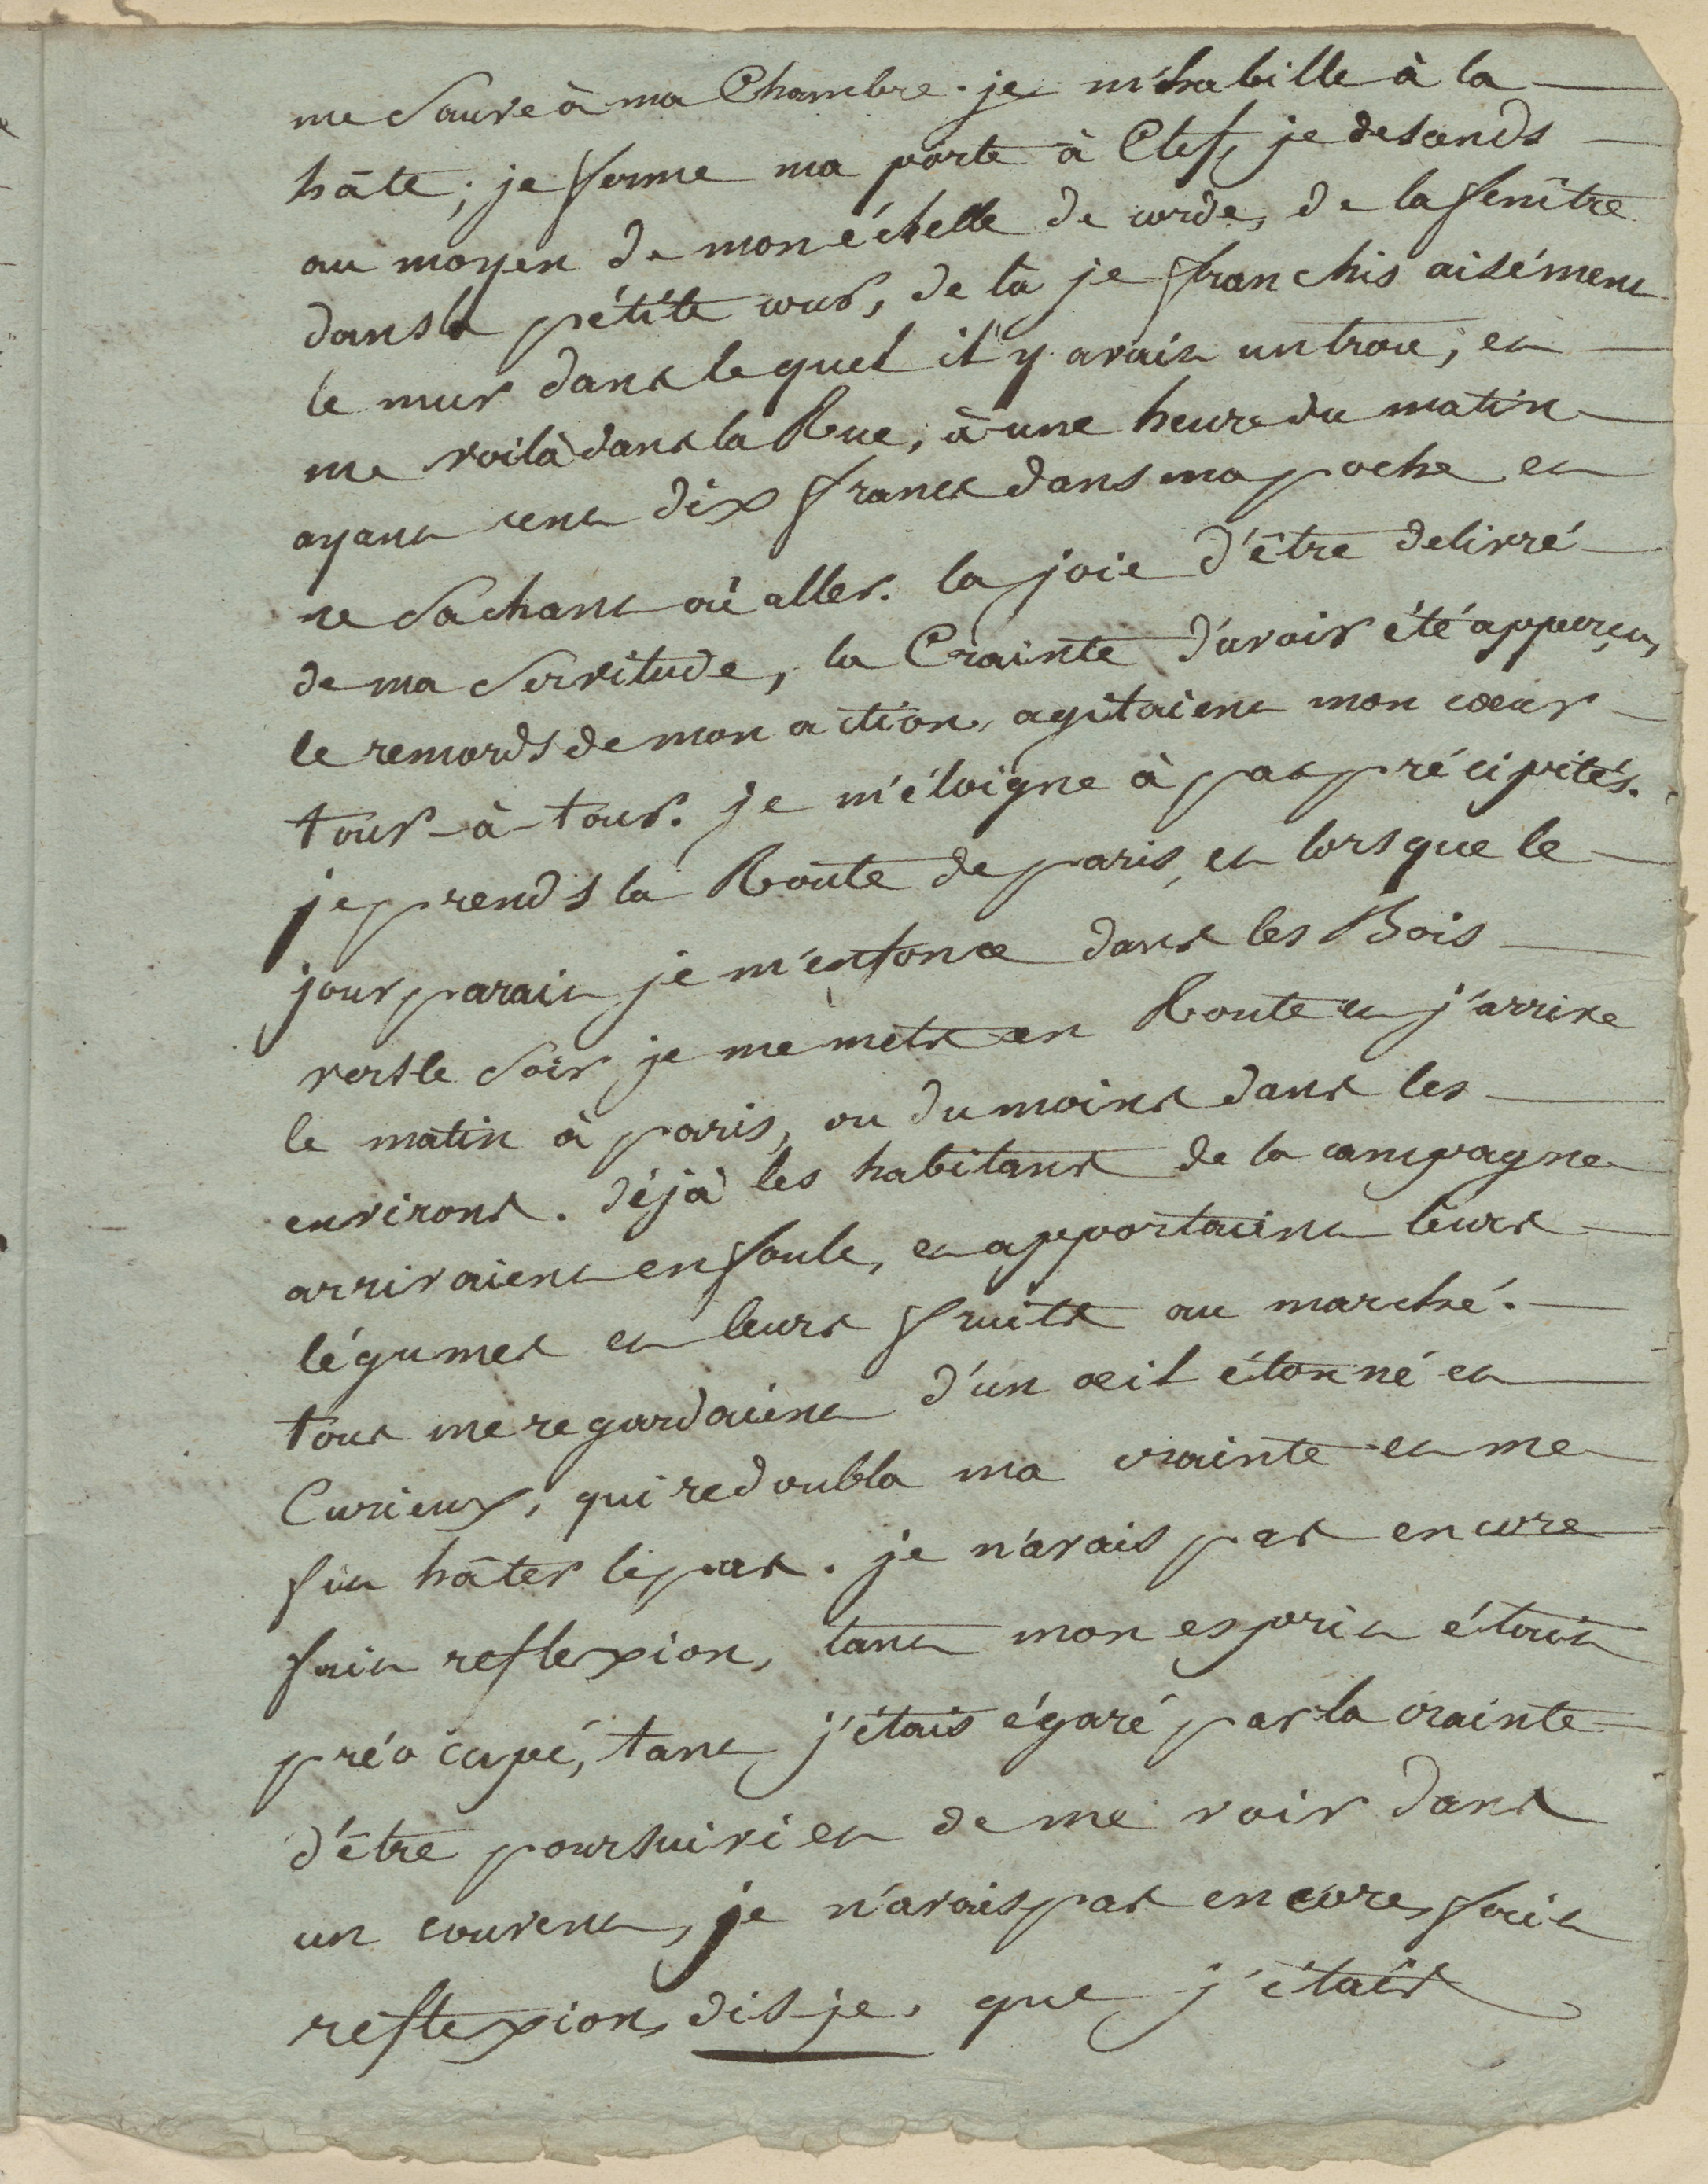 me sauve à ma Chambre. je m'habille à la
hâte; je ferme ma porte à Clef, je desends
au moyen de mon échelle de corde, de la fenître
dans la pétite cour, de là je franchis aisément
le mur dans le quel il y avait un trou; et
me voilà dans la Rue, à une heure du matin
ayant cent dix francs dans ma poche et
ne sachant où aller. la joie d'être delivré
de ma servitude, la Crainte d'avoir été apperçu,
le remords de mon action, agitaient mon cœur
tour-à-tour. je m'éloigne à pas précipités.
je prends la Route de paris, et lorsque le
jour parait je m'enfonce dans les Bois
vers le soir je me mets en Route et j'arrive
le matin à paris, ou du moins dans les
environs. déjà les habitans de la campagne
arrivaient en foule, et apportaient leurs
légumes et leurs fruits au marché.
tous me regardaient d'un œil étonné et
Curieux, qui redoubla ma crainte et me
fit hâter le pas. je n'avais pas encore
fait reflexion, tant mon esprit était
préocupé, tant j'étais égaré par la crainte
d'être poursuivi et de me voir dans
un couvent, je n'avais pas encore fait
reflexion, dis-je, que j'étais